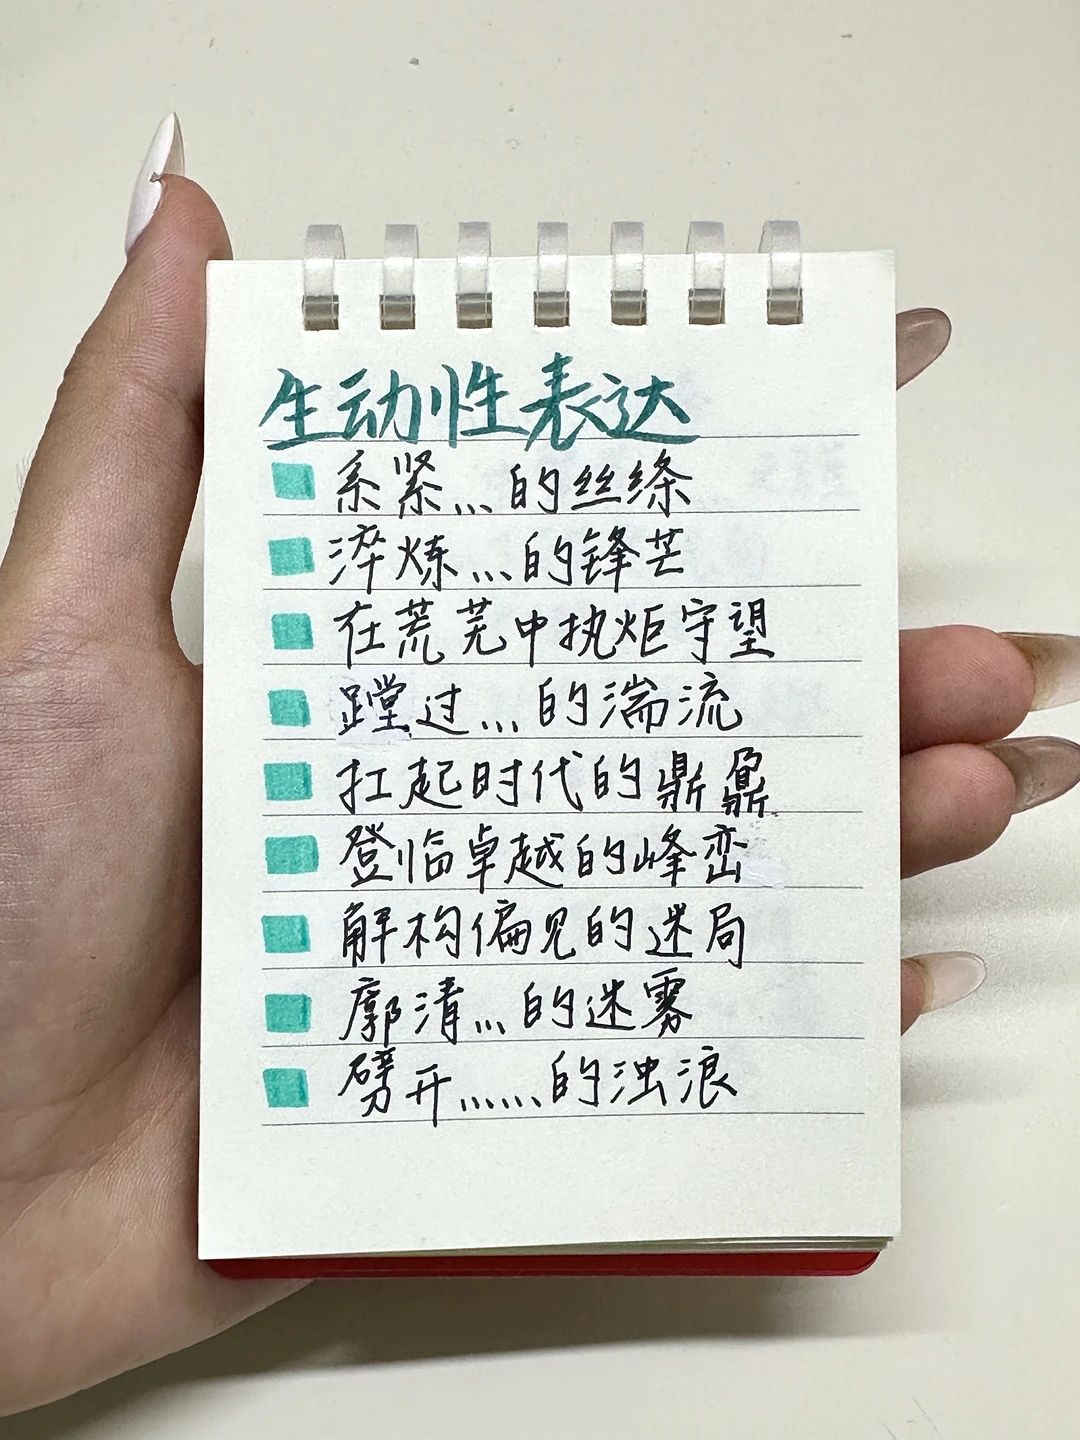 生动性表达
系紧...的丝绦
淬炼...的锋芒
在荒芜中执炬守望
蹚过...的湍流
扛起时代的鼎鼐
登临卓越的峰峦
解构偏见的迷局
廓清...的迷雾
劈开......的浊浪